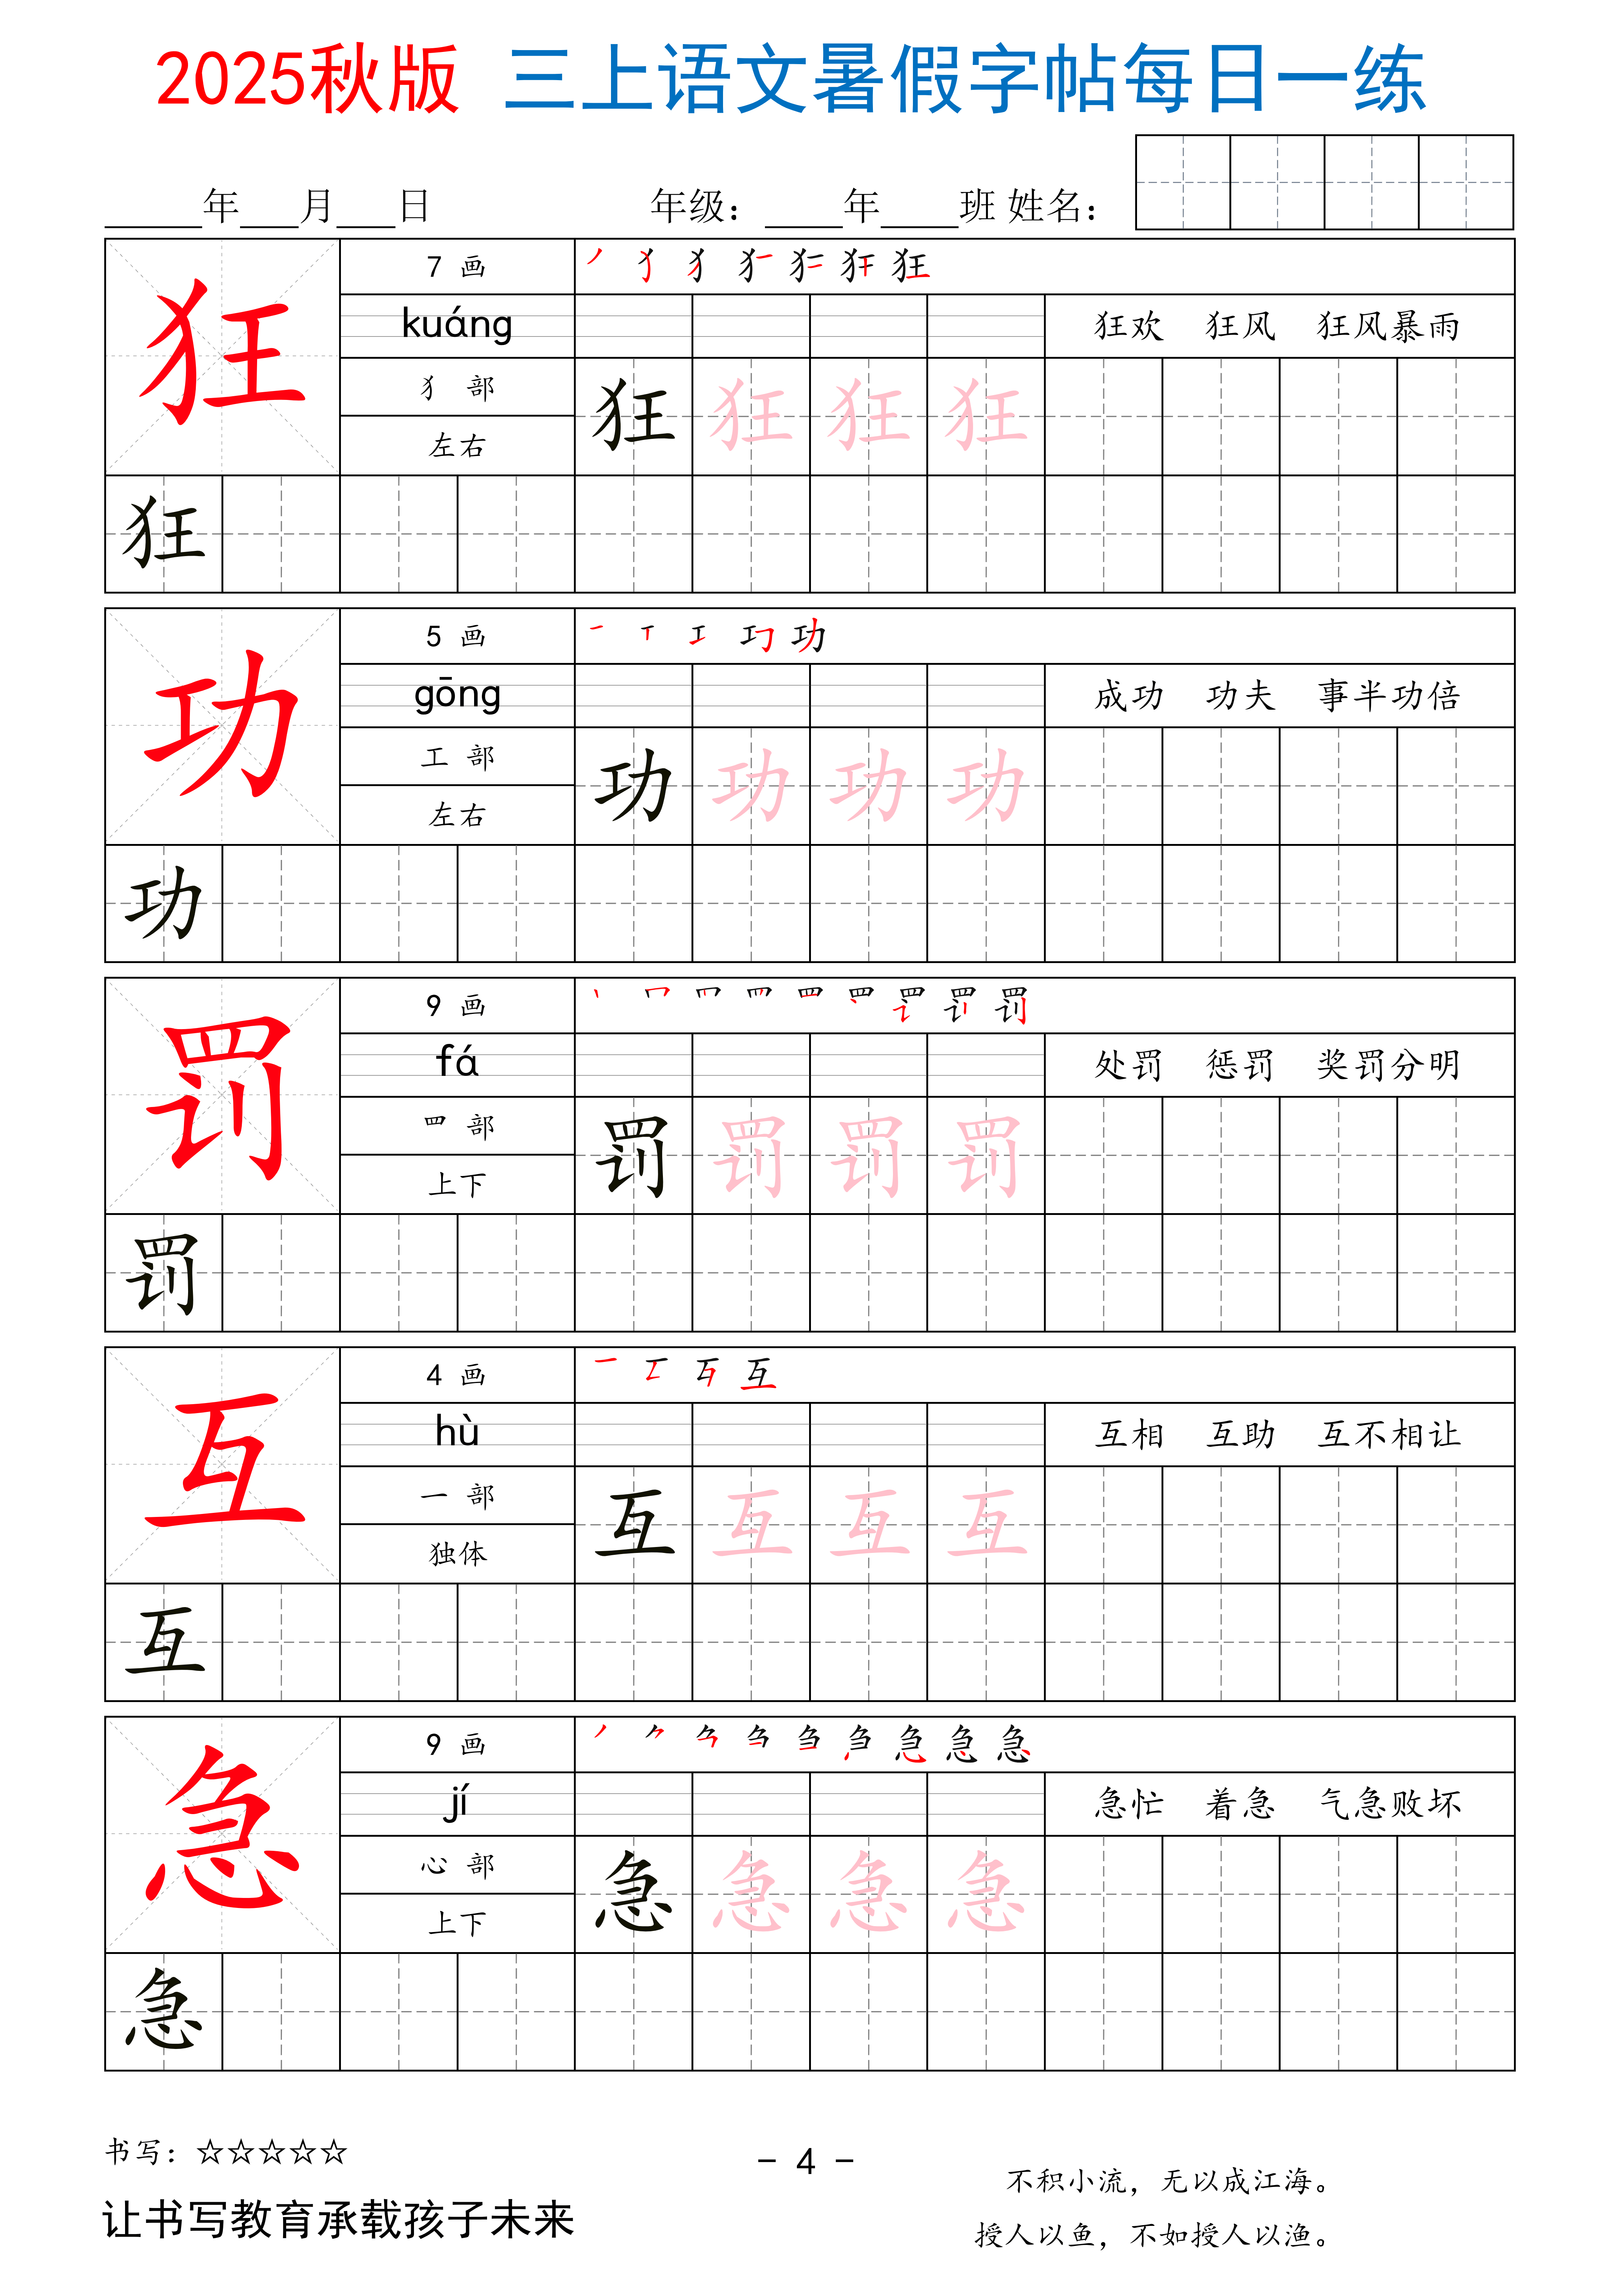 2025秋版 三上语文暑假字帖每日一练
____年___月___日 年级：____年____班 姓名：
狂 7 画 丿 犭 犭 犭 犭 狂 狂
kuáng 狂欢 狂风 狂风暴雨
犭 部 狂 狂 狂 狂
左右
狂
功 5 画 一 丅 工 功 功
gōng 成功 功夫 事半功倍
工 部 功 功 功 功
左右
功
罚 9 画 罚
fá 处罚 惩罚 奖罚分明
罒 部 罚 罚 罚 罚
上下
罚
互 4 画 一 互 互
hù 互相 互助 互不相让
一 部 互 互 互 互
独体
互
急 9 画 丿 刍 急
jí 急忙 着急 气急败坏
心 部 急 急 急 急
上下
急
书写：☆☆☆☆☆
- 4 -
不积小流，无以成江海。
让书写教育承载孩子未来
授人以鱼，不如授人以渔。